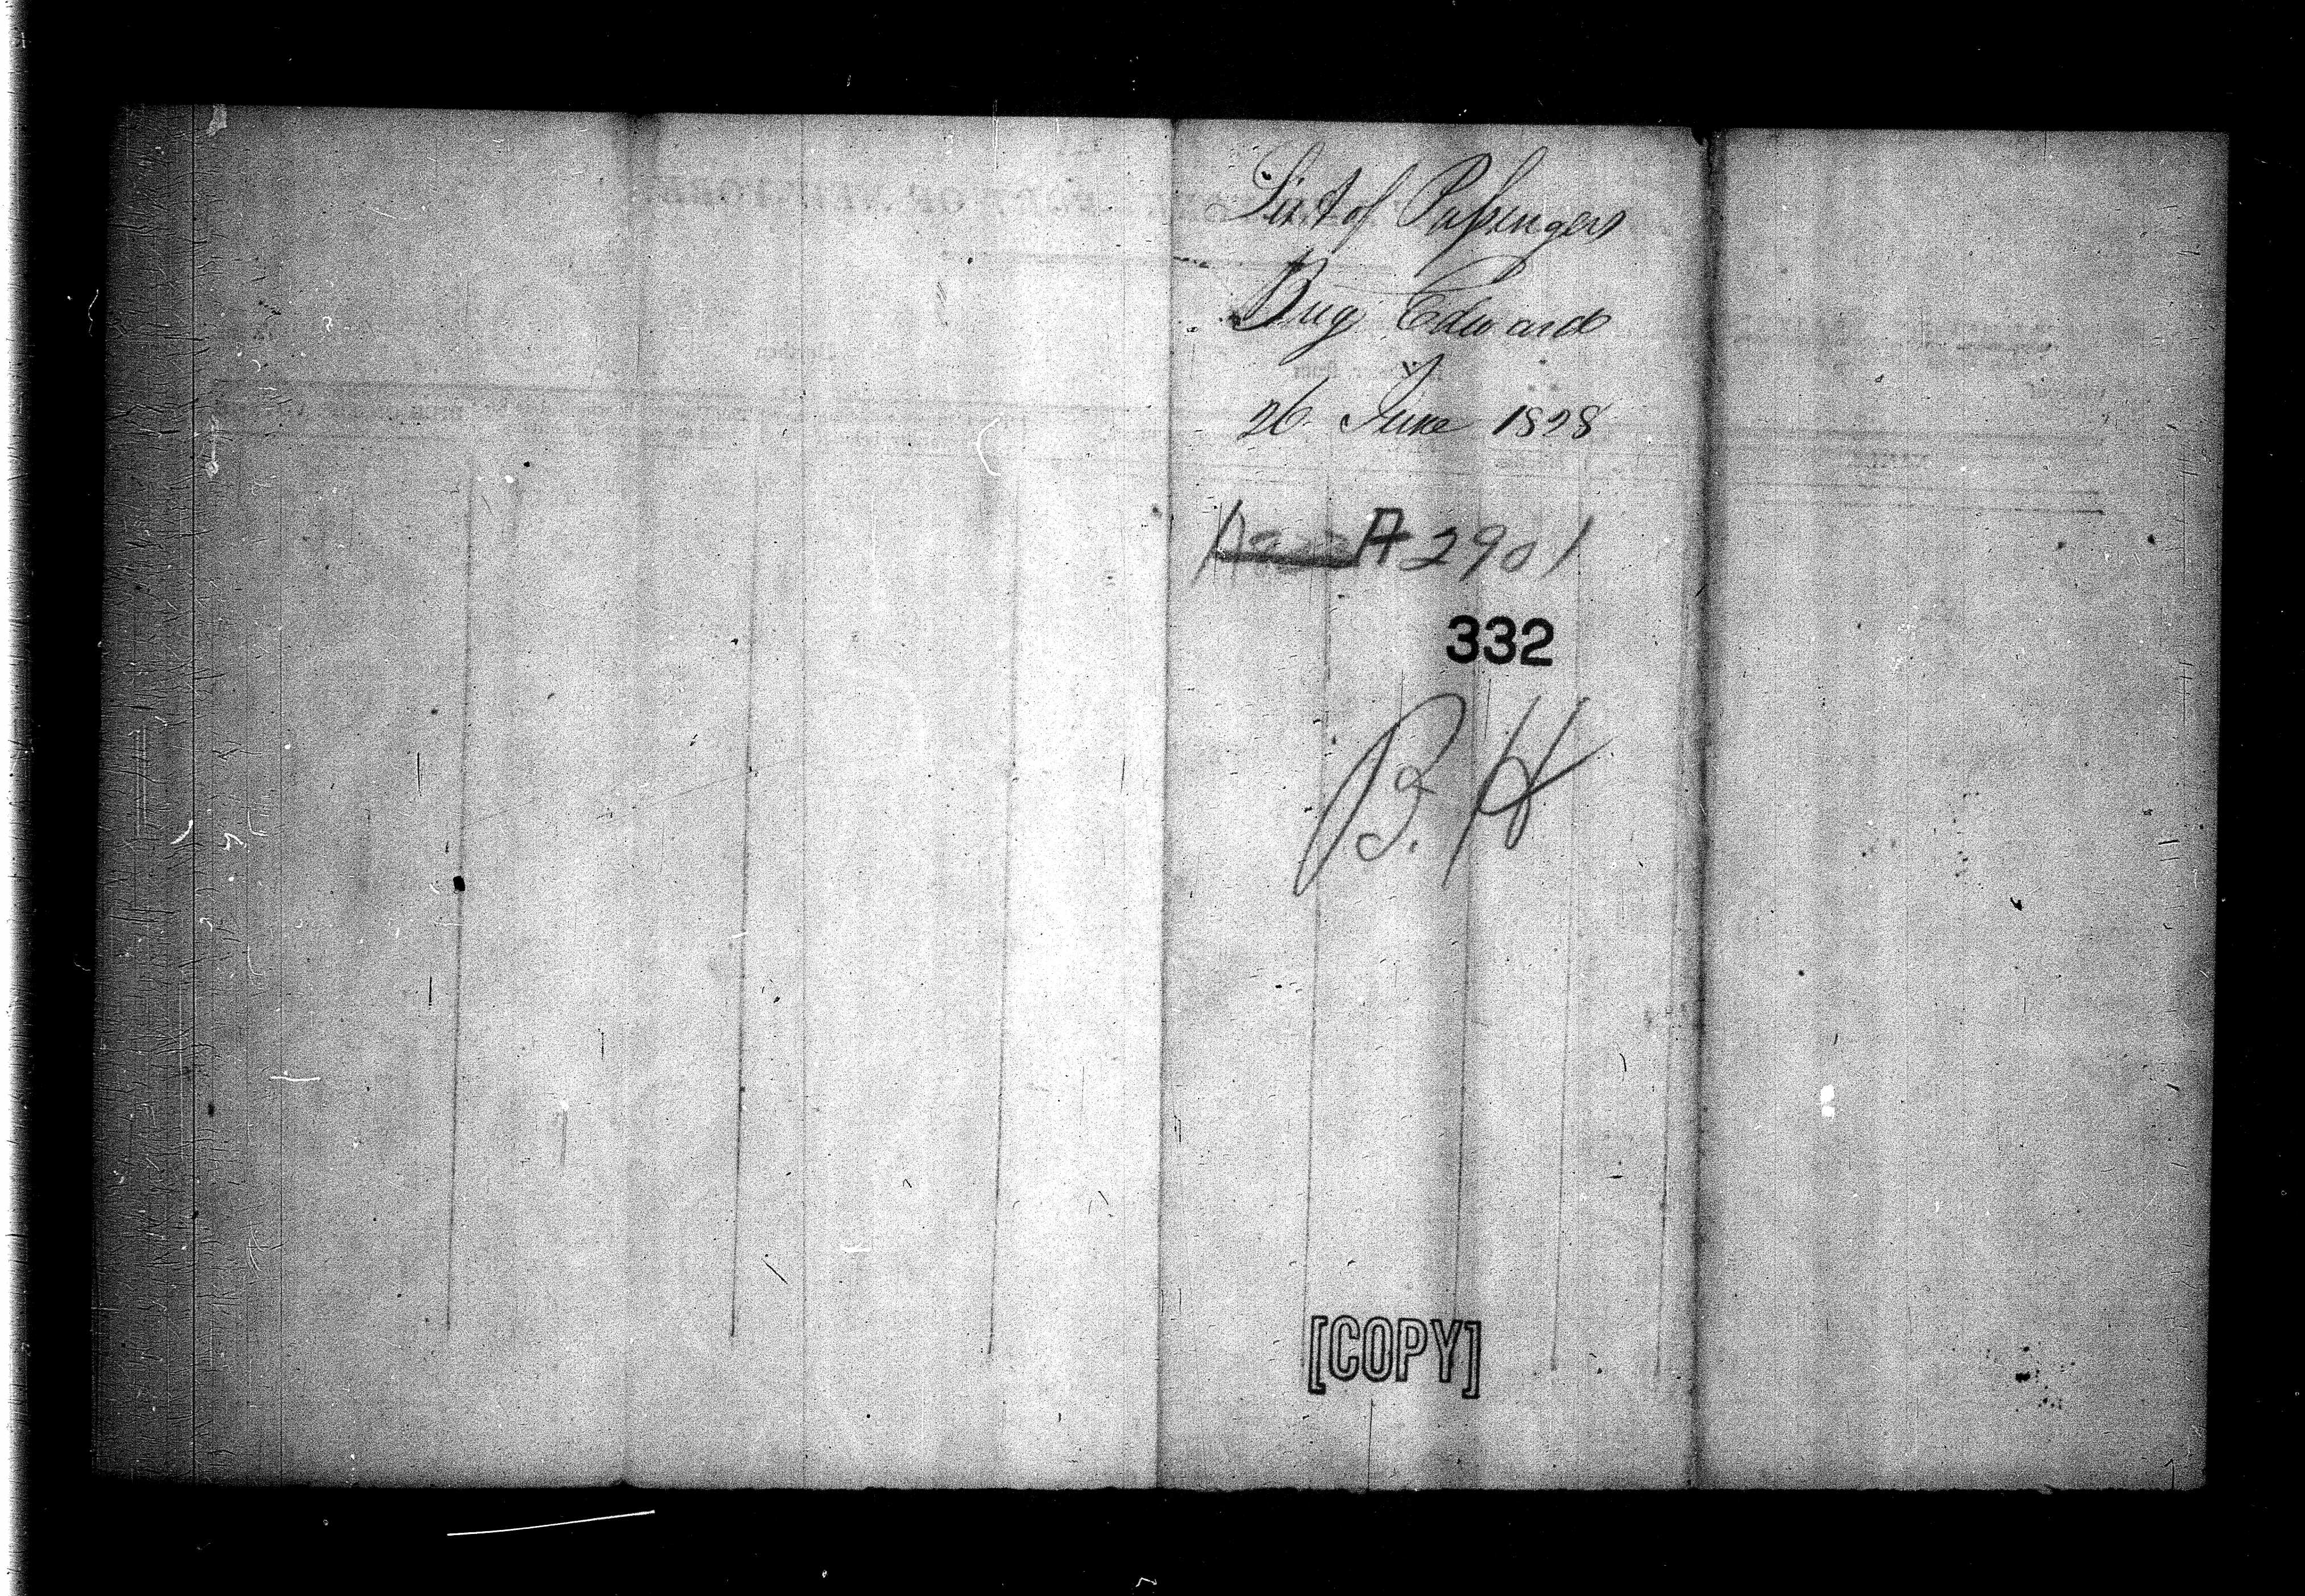 List of Passengers
Brig Edward
26 June 1828
A 2901
332
B. H
[COPY]